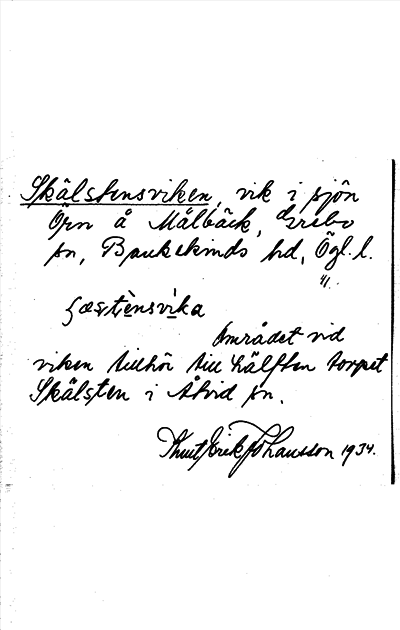 Skälstensviken, vik i sjön
Örn å Målbäck, Grebo
sn, Bankekinds hd, Ögl. l.
Området vid
viken tillhör till hälften torpet
Skälsten i Åtvid sn.
Knut Erik Johansson 1934.